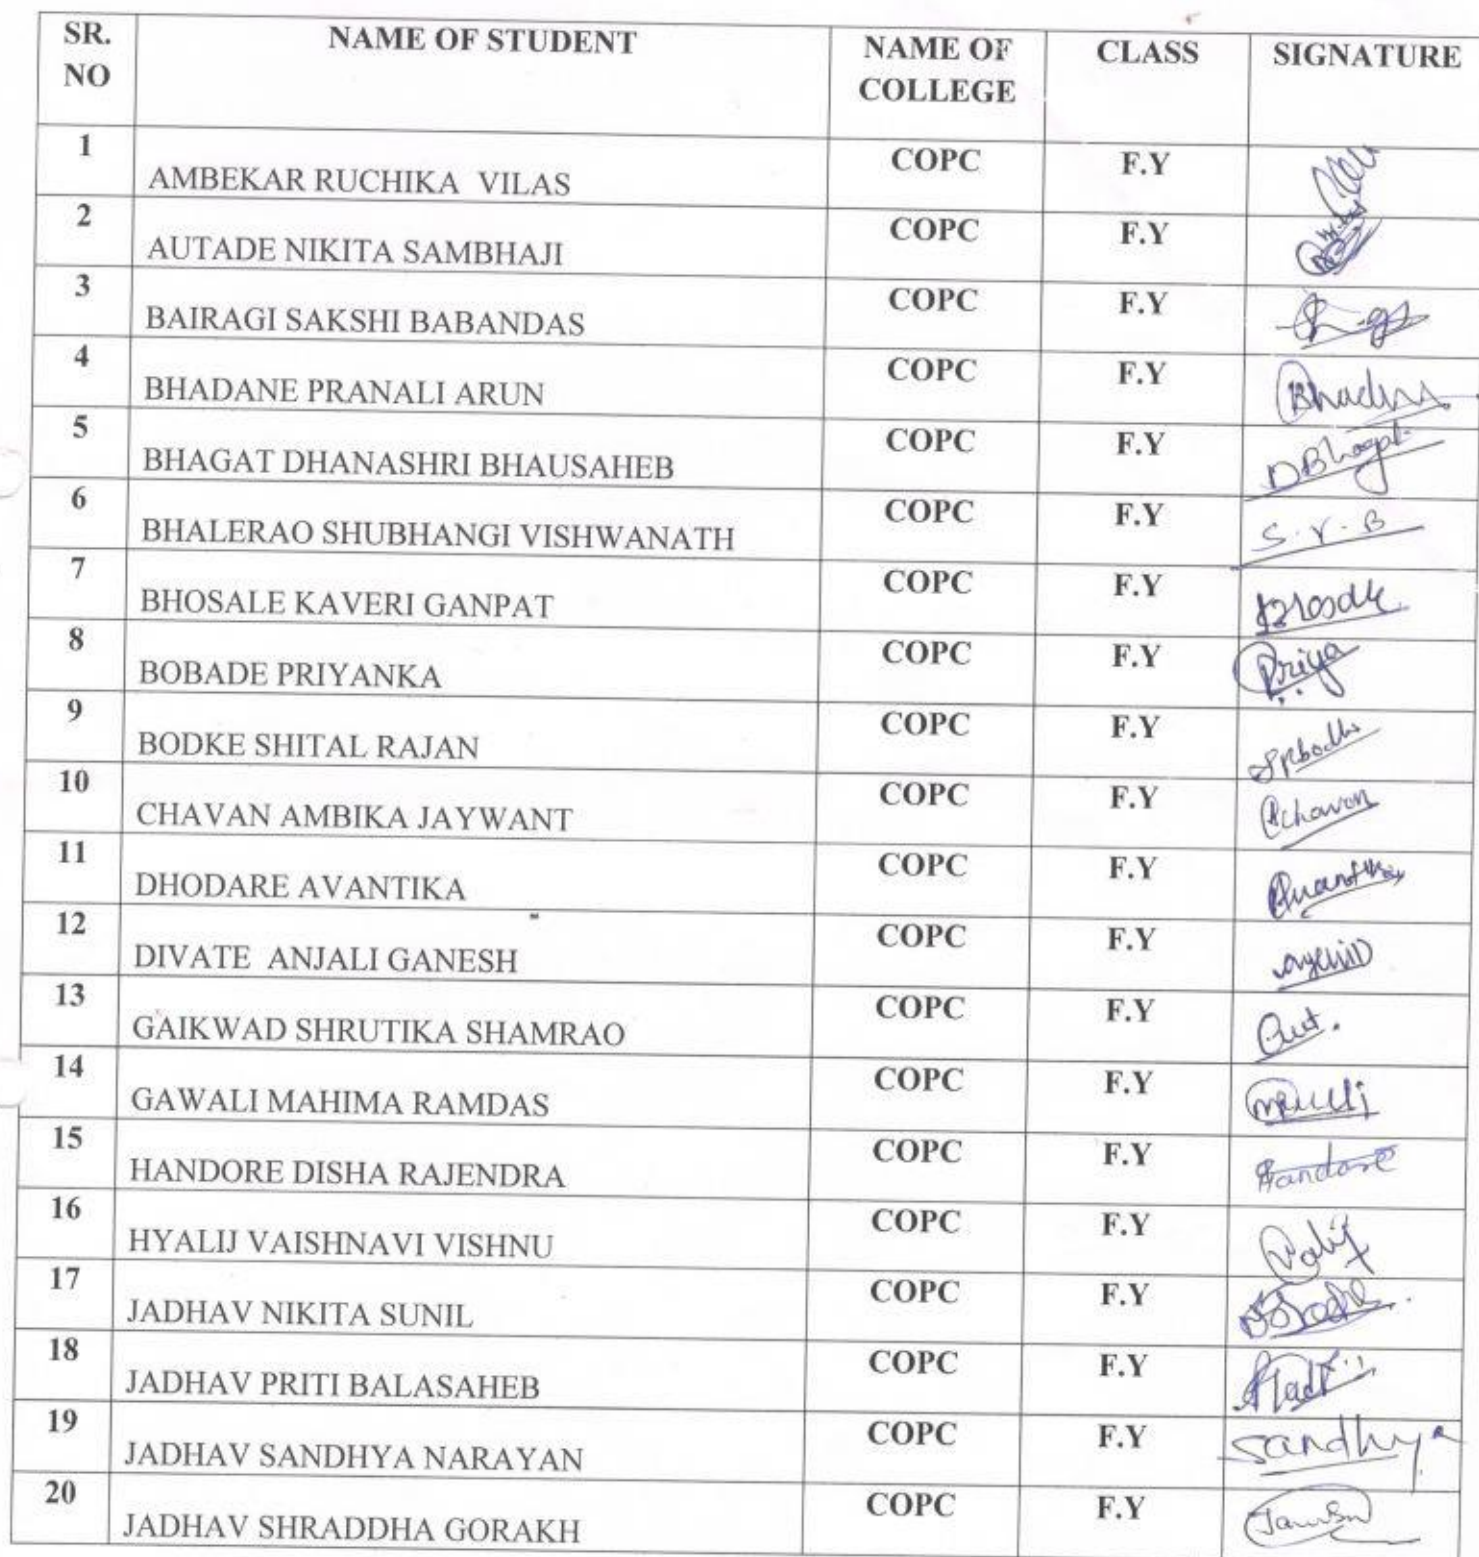 SR. NO NAME OF STUDENT NAME OF COLLEGE CLASS SIGNATURE
1 AMBEKAR RUCHIKA VILAS COPC F.Y
2 AUTADE NIKITA SAMBHAJI COPC F.Y
3 BAIRAGI SAKSHI BABANDAS COPC F.Y
4 BHADANE PRANALI ARUN COPC F.Y
5 BHAGAT DHANASHRI BHAUSAHEB COPC F.Y DBhagat
6 BHALERAO SHUBHANGI VISHWANATH COPC F.Y S.V.B
7 BHOSALE KAVERI GANPAT COPC F.Y
8 BOBADE PRIYANKA COPC F.Y Priya
9 BODKE SHITAL RAJAN COPC F.Y
10 CHAVAN AMBIKA JAYWANT COPC F.Y AChavan
11 DHODARE AVANTIKA COPC F.Y Avantika
12 DIVATE ANJALI GANESH COPC F.Y
13 GAIKWAD SHRUTIKA SHAMRAO COPC F.Y
14 GAWALI MAHIMA RAMDAS COPC F.Y
15 HANDORE DISHA RAJENDRA COPC F.Y Handore
16 HYALIJ VAISHNAVI VISHNU COPC F.Y
17 JADHAV NIKITA SUNIL COPC F.Y
18 JADHAV PRITI BALASAHEB COPC F.Y
19 JADHAV SANDHYA NARAYAN COPC F.Y Sandhya
20 JADHAV SHRADDHA GORAKH COPC F.Y